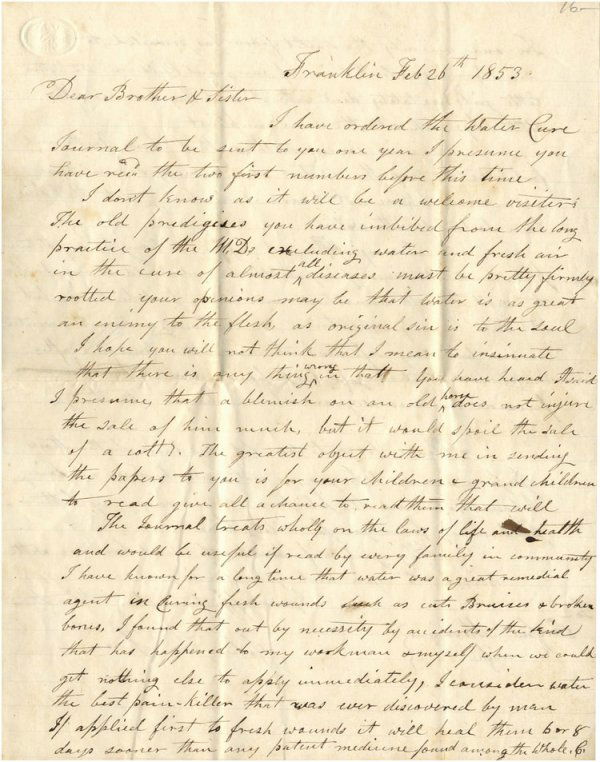 16-
Franklin Feb 26th 1853
Dear Brother & Sister
I have ordered the Water Cure
Journal to be sent to you one year I presume you
have read the two first numbers before this time
I dont know as it will be a welcome visiter:
The old predigises you have imbibed from the long
practice of the M.Ds excluding water and fresh air
in the cure of almost all diseases must be pretty firmly
rootted your opinions may be that water is as great
an enemy to the flesh, as original sin is to the soul
I hope you will not think that I mean to insinuate
that there is any thing wrong in that You have heard It said
I presume, that a blemish on an old horse does not injure
the sale of him much, but it would spoil the sale
of a colt. The greatest object with me in sending
the papers to you is for your children & grand children
to read give all a chance to read them that will
The Journal treats wholly on the laws of life and health
and would be useful if read by every family in community
I have known for a long time that water was a great remedial
agent in curing fresh wounds such as cuts Bruises & broken
bones, I found that out by necessity by accidents of the kind
that has happened to my workman & myself when we could
get nothing else to apply immediately, I consider water
the best pain-killer that was ever discovered by man
If applied first to fresh wounds it will heal them 6 or 8
days sooner than any patent medicine found among the whole.